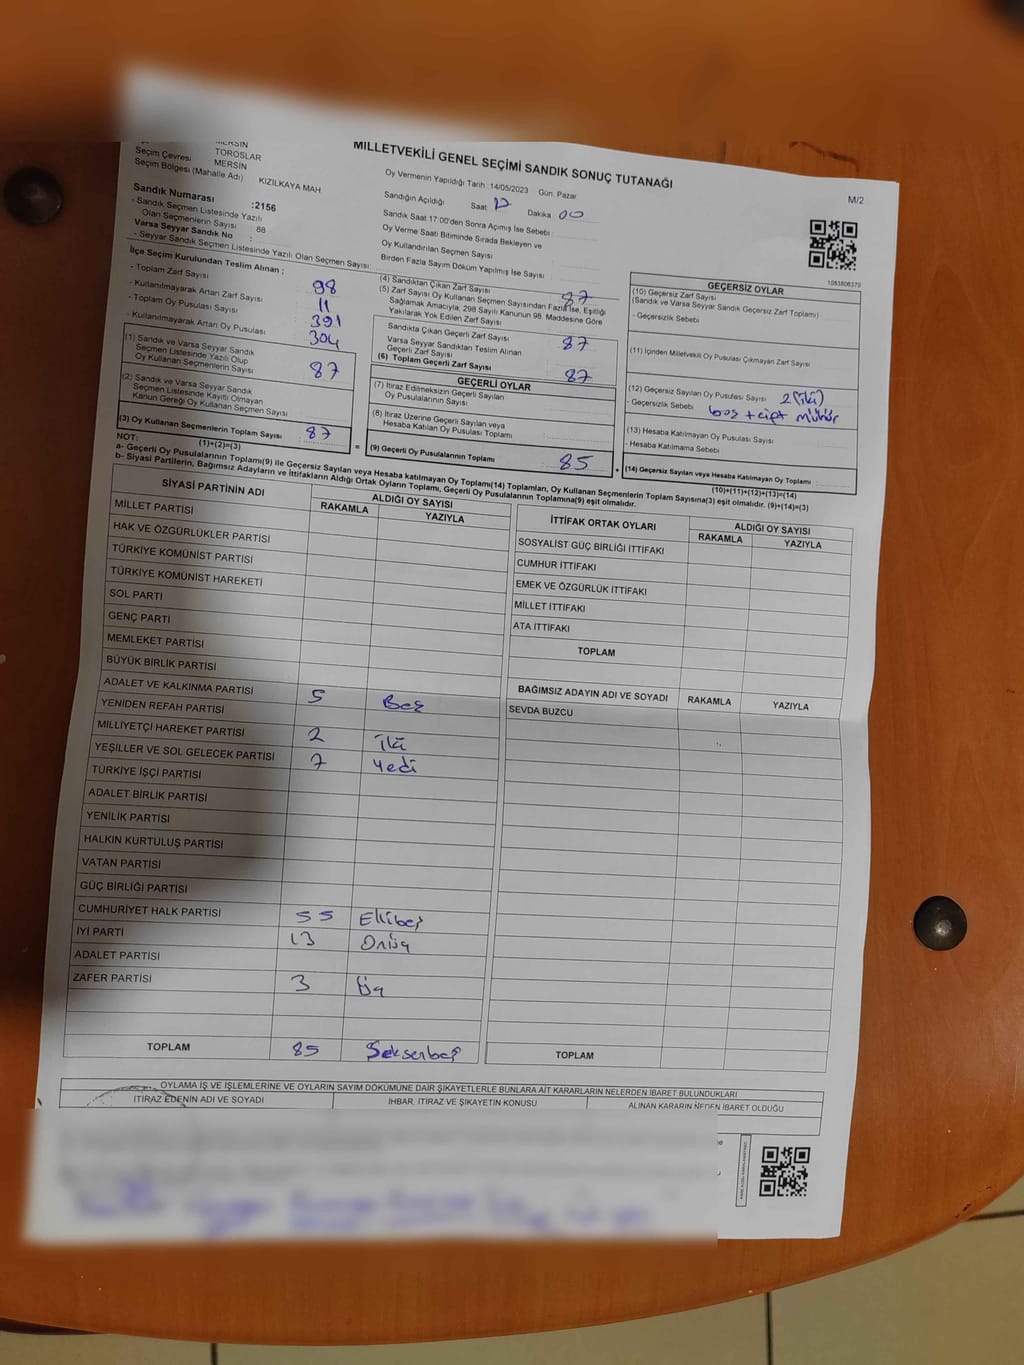 MERSİN
Seçim Çevresi TOROSLAR
Seçim Bölgesi (Mahalle Adı) MERSİN
KIZILKAYA MAH
MİLLETVEKİLİ GENEL SEÇİMİ SANDIK SONUÇ TUTANAĞI
M/2
Oy Vermenin Yapıldığı Tarih : 14/05/2023 Gün: Pazar
Sandığın Açıldığı Saat 17 Dakika : 00
Sandık Saat 17:00'den Sonra Açımış İse Sebebi :
Oy Verme Saati Bitiminde Sırada Bekleyen ve
Oy Kullandırılan Seçmen Sayısı
Birden Fazla Sayım Döküm Yapılmış İse Sayısı
Sandık Numarası :2156
- Sandık Seçmen Listesinde Yazılı
Olan Seçmenlerin Sayısı 88
Varsa Seyyar Sandık No :
- Seyyar Sandık Seçmen Listesinde Yazılı Olan Seçmen Sayısı:
İlçe Seçim Kurulundan Teslim Alınan ;
- Toplam Zarf Sayısı 98
- Kullanılmayarak Artan Zarf Sayısı 11
- Toplam Oy Pusulası Sayısı 391
- Kullanılmayarak Artan Oy Pusulası 304
(1) Sandık ve Varsa Seyyar Sandık
Seçmen Listesinde Yazılı Olup
Oy Kullanan Seçmenlerin Sayısı 87
(2) Sandık ve Varsa Seyyar Sandık
Seçmen Listesinde Kayıtlı Olmayan
Kanun Gereği Oy Kullanan Seçmen Sayısı
(3) Oy Kullanan Seçmenlerin Toplam Sayısı 87
(1)+(2)=(3)
(4) Sandıktan Çıkan Zarf Sayısı 87
(5) Zarf Sayısı Oy Kullanan Seçmen Sayısından Fazla İse, Eşitliği
Sağlamak Amacıyla, 298 Sayılı Kanunun 98. Maddesine Göre
Yakılarak Yok Edilen Zarf Sayısı
Sandıkta Çıkan Geçerli Zarf Sayısı 87
Varsa Seyyar Sandıktan Teslim Alınan
Geçerli Zarf Sayısı
(6) Toplam Geçerli Zarf Sayısı 87
GEÇERLİ OYLAR
(7) İtiraz Edilmeksizin Geçerli Sayılan
Oy Pusulalarının Sayısı
(8) İtiraz Üzerine Geçerli Sayılan veya
Hesaba Katılan Oy Pusulası Toplamı
(9) Geçerli Oy Pusulalarının Toplamı 85
1083806370
GEÇERSİZ OYLAR
(10) Geçersiz Zarf Sayısı
(Sandık ve Varsa Seyyar Sandık Geçersiz Zarf Toplamı)
- Geçersizlik Sebebi
(11) İçinden Milletvekili Oy Pusulası Çıkmayan Zarf Sayısı
(12) Geçersiz Sayılan Oy Pusulası Sayısı 2 (iki)
- Geçersizlik Sebebi boş + çift mühür
(13) Hesaba Katılmayan Oy Pusulası Sayısı
- Hesaba Katılmama Sebebi
(14) Geçersiz Sayılan veya Hesaba Katılmayan Oy Toplamı
(10)+(11)+(12)+(13)=(14)
NOT:
a- Geçerli Oy Pusulalarının Toplamı(9) ile Geçersiz Sayılan veya Hesaba katılmayan Oy Toplamı(14) Toplamları, Oy Kullanan Seçmenlerin Toplam Sayısına(3) eşit olmalıdır. (9)+(14)=(3)
b- Siyasi Partilerin, Bağımsız Adayların ve İttifakların Aldığı Ortak Oyların Toplamı, Geçerli Oy Pusulalarının Toplamına(9) eşit olmalıdır.
SİYASİ PARTİNİN ADI ALDIĞI OY SAYISI
RAKAMLA YAZIYLA
MİLLET PARTİSİ
HAK VE ÖZGÜRLÜKLER PARTİSİ
TÜRKİYE KOMÜNİST PARTİSİ
TÜRKİYE KOMÜNİST HAREKETİ
SOL PARTİ
GENÇ PARTİ
MEMLEKET PARTİSİ
BÜYÜK BİRLİK PARTİSİ
ADALET VE KALKINMA PARTİSİ 5 Beş
YENİDEN REFAH PARTİSİ
MİLLİYETÇİ HAREKET PARTİSİ 2 iki
YEŞİLLER VE SOL GELECEK PARTİSİ 7 Yedi
TÜRKİYE İŞÇİ PARTİSİ
ADALET BİRLİK PARTİSİ
YENİLİK PARTİSİ
HALKIN KURTULUŞ PARTİSİ
VATAN PARTİSİ
GÜÇ BİRLİĞİ PARTİSİ
CUMHURİYET HALK PARTİSİ 55 Ellibeş
İYİ PARTİ 13 Onüç
ADALET PARTİSİ
ZAFER PARTİSİ 3 üç
TOPLAM 85 Seksenbeş
İTTİFAK ORTAK OYLARI ALDIĞI OY SAYISI
RAKAMLA YAZIYLA
SOSYALİST GÜÇ BİRLİĞİ İTTİFAKI
CUMHUR İTTİFAKI
EMEK VE ÖZGÜRLÜK İTTİFAKI
MİLLET İTTİFAKI
ATA İTTİFAKI
TOPLAM
BAĞIMSIZ ADAYIN ADI VE SOYADI RAKAMLA YAZIYLA
SEVDA BUZCU
TOPLAM
OYLAMA İŞ VE İŞLEMLERİNE VE OYLARIN SAYIM DÖKÜMÜNE DAİR ŞİKAYETLERLE BUNLARA AİT KARARLARIN NELERDEN İBARET BULUNDUKLARI
İTİRAZ EDENİN ADI VE SOYADI İHBAR, İTİRAZ VE ŞİKAYETİN KONUSU ALINAN KARARIN NEDEN İBARET OLDUĞU